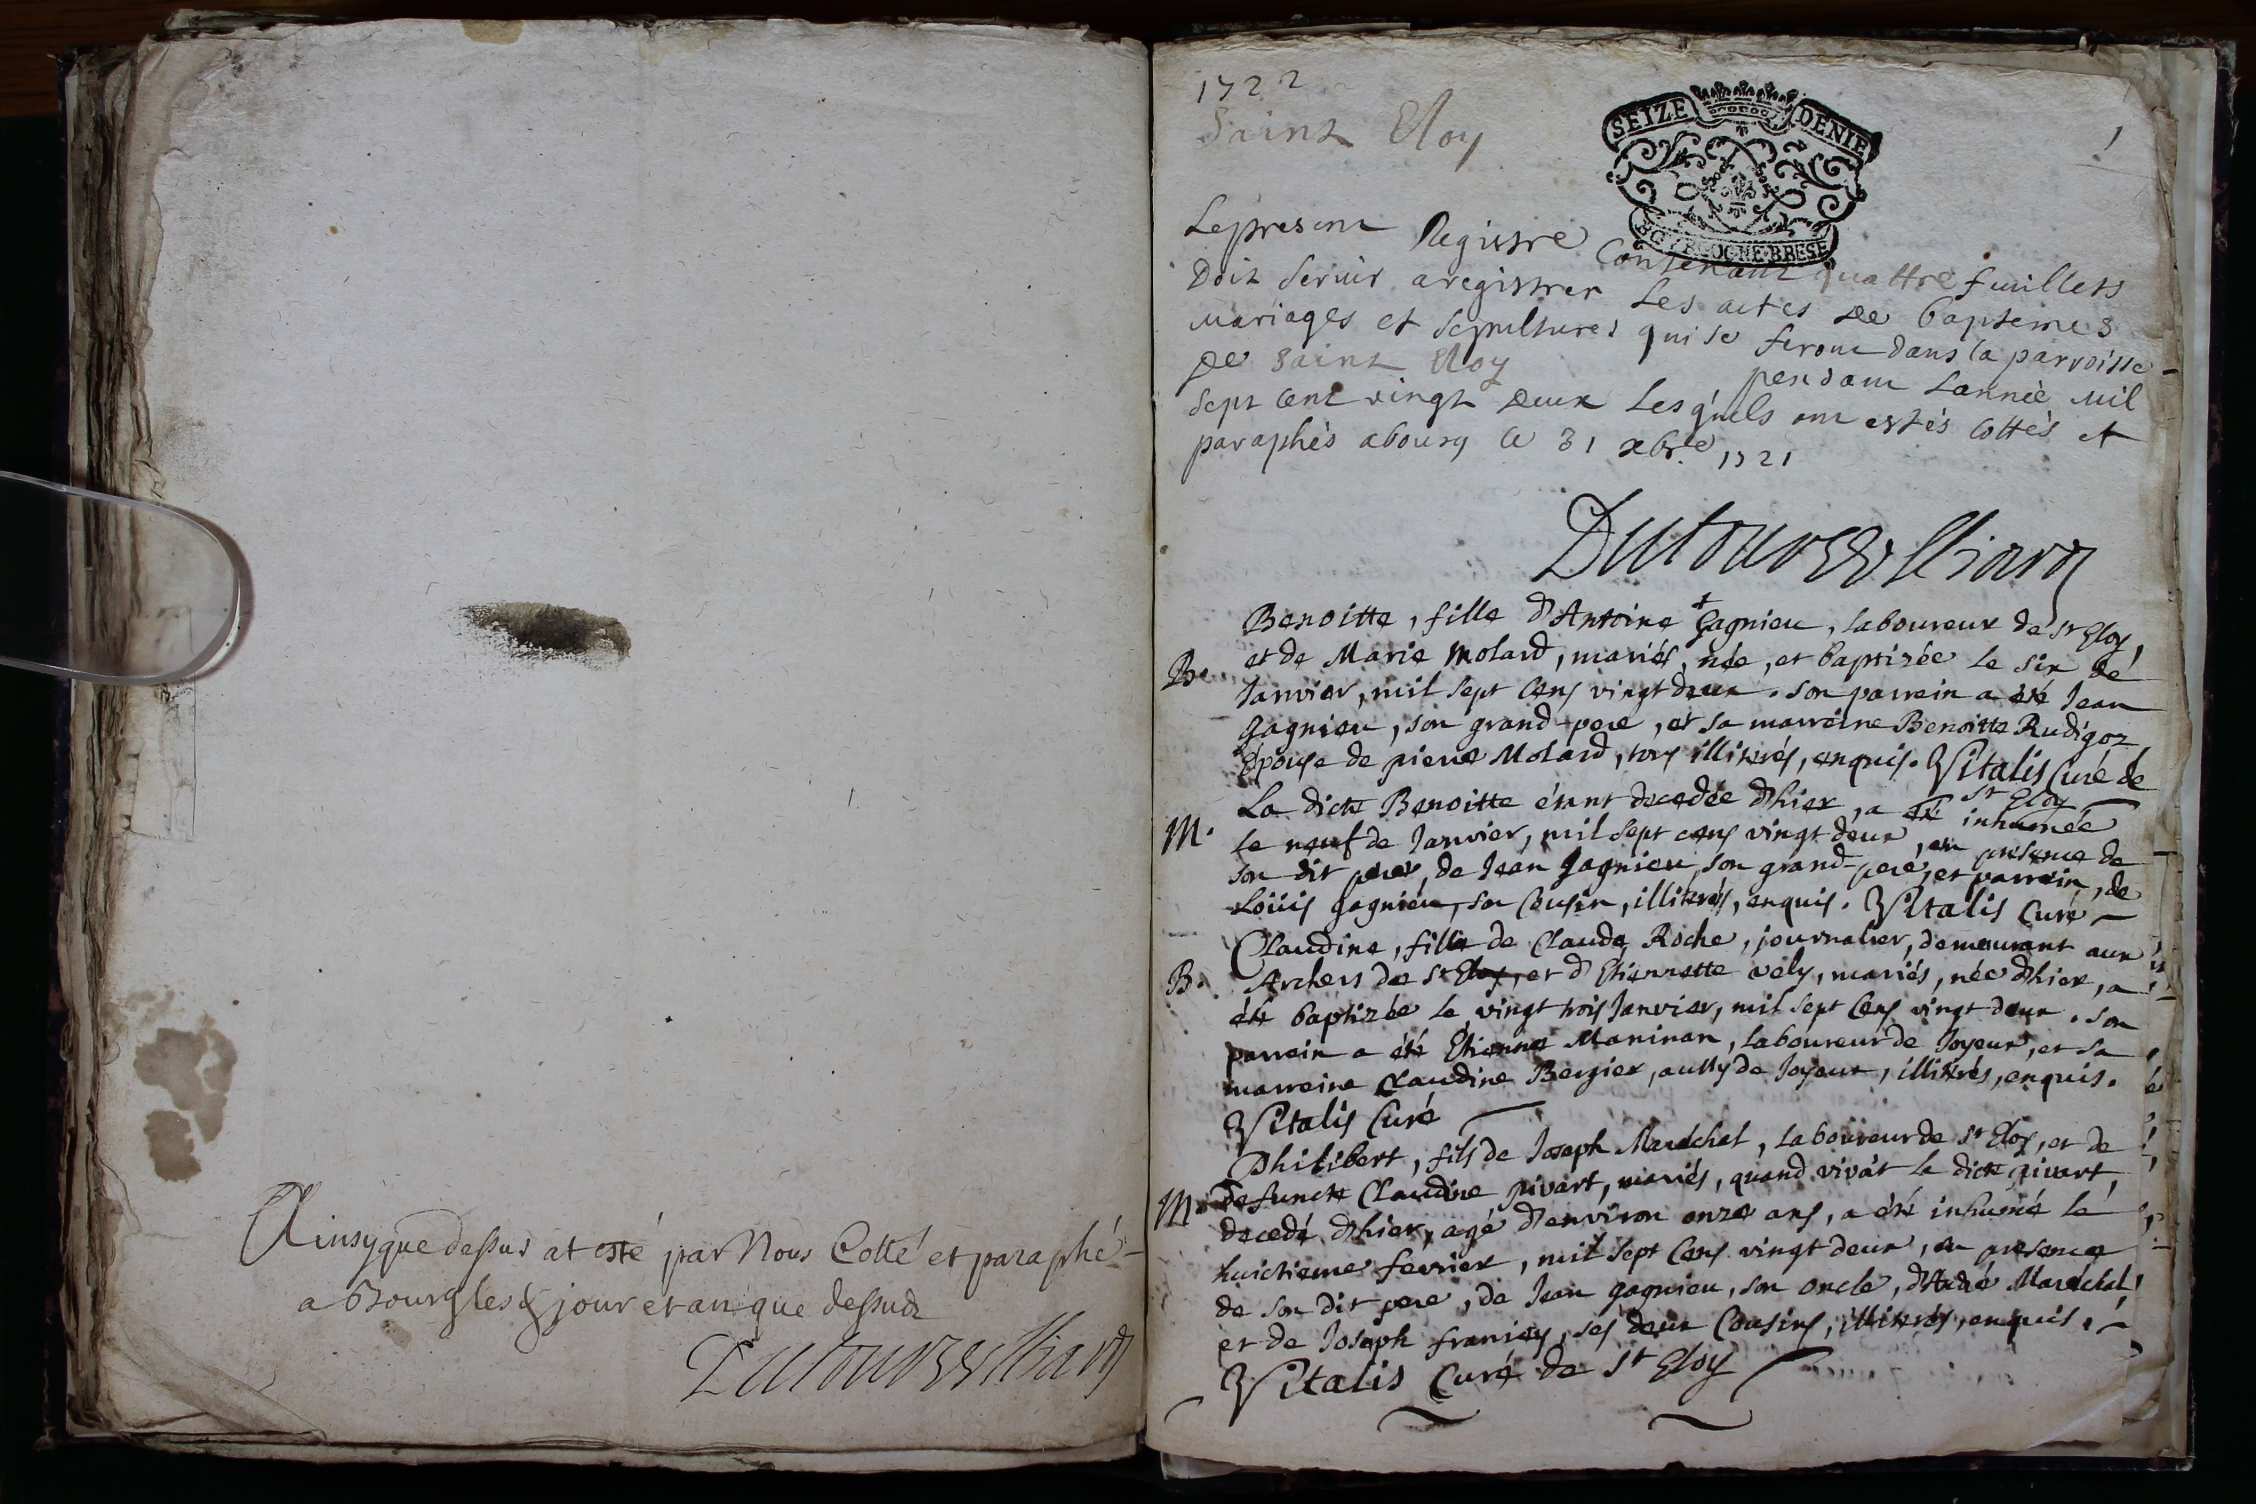 Ainsy que dessus at esté par Nous Cotté et paraphé
a Bourg les jour et an que dessus
Dutour Vulliard
1722
Saint Eloy
1
SEIZE DENIE
BOURGOGNE·BRESE
Le present Registre Contenant quattre feuillets
Doit servir a registrer Les actes de baptemes
mariages et sepultures qui se feront dans la parroisse
de Saint Eloy pendant Lannée mil
Sept Cent vingt deux Lesquels ont estés Cottés et
paraphés a bourg le 31 xbre 1721
Dutour Vulliard
Benoitte, fille d'Antoine + Gagnieu, laboureur de st Eloy,
B. et de Marie Molard, mariés, née, et baptizée le six de
Janvier, mil sept cens vingt deux. son parrein a été Jean
Gagnieu, son grand-pere, et sa marreine Benoitte Rudigoz
épouse de pierre Molard, tous illiterés, enquis. Vitalis Curé de
st Eloy
La dicte Benoitte étant decedée d'hier, a été inhumée
M. le neuf de Janvier, mil sept cens vingt deux, en presence de
son dit pere, de Jean Gagnieu son grand-pere, et parrein, de
Loüis gagnieu, son Cousin, illiterés, enquis. Vitalis Curé
Claudine, fille de Claude Roche, journalier, demeurant aux
B. Archers de st Eloy, et d'Etiennette vely, mariés, née d'hier, a
été baptizée le vingt trois Janvier, mil sept Cens vingt deux. son
parrein a été Etienne Maninan, laboureur de Joyeux, et sa
marreine Claudine Bergier, aussy de Joyeux, illiterés, enquis.
Vitalis Curé
Philibert, fils de Joseph Maréchal, laboureur de st Eloy, et de
M. defuncte Claudine pivart, mariés, quand vivát la dicte pivart,
decedé d'hier, agé d'environ onze ans, a été inhumé le
huictieme fevrier, mil sept Cens vingt deux, en presence
de son dit pere, de Jean gagnieu, son oncle, d'André Maréchal,
et de Joseph ses deux Cousins, illiterés, enquis.
Vitalis Curé de st Eloy